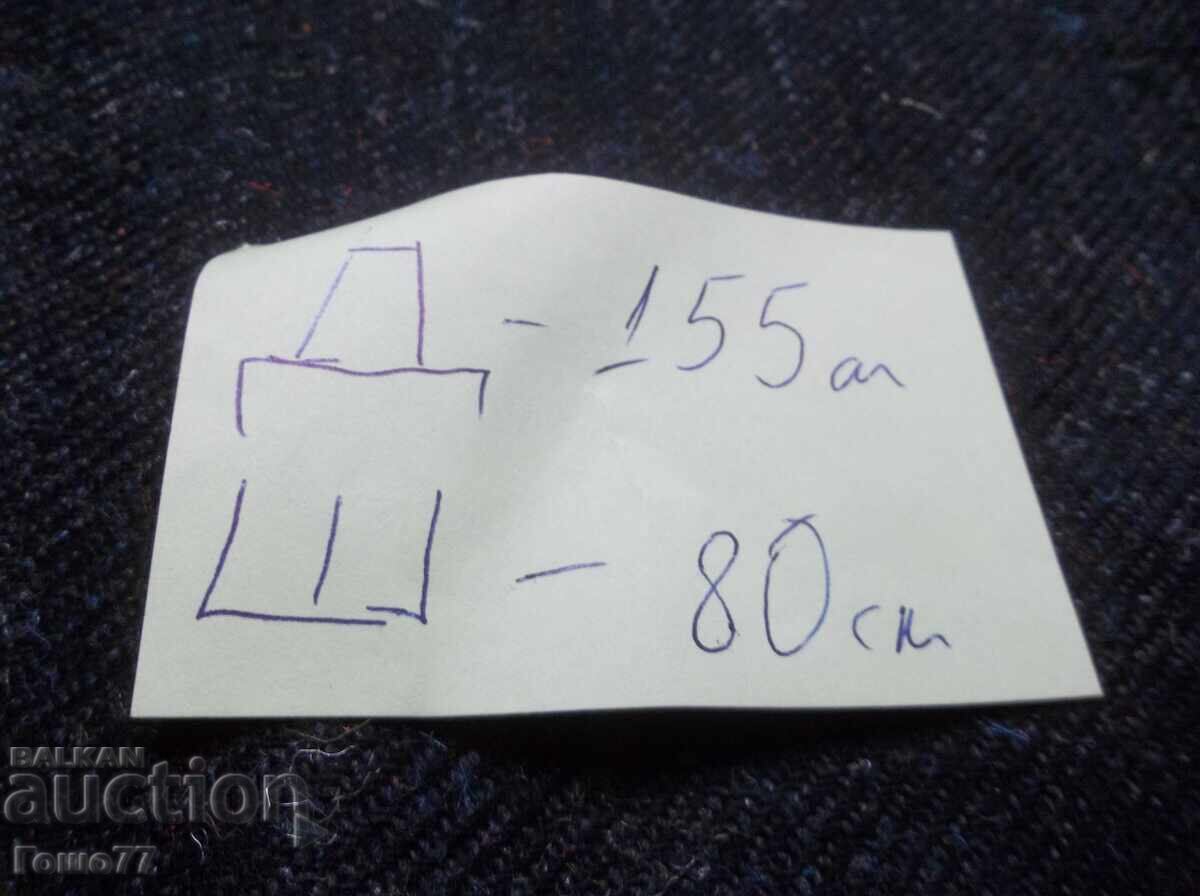 Д - 155 см
Ш - 80 см
BALKAN
auction
Гошо77